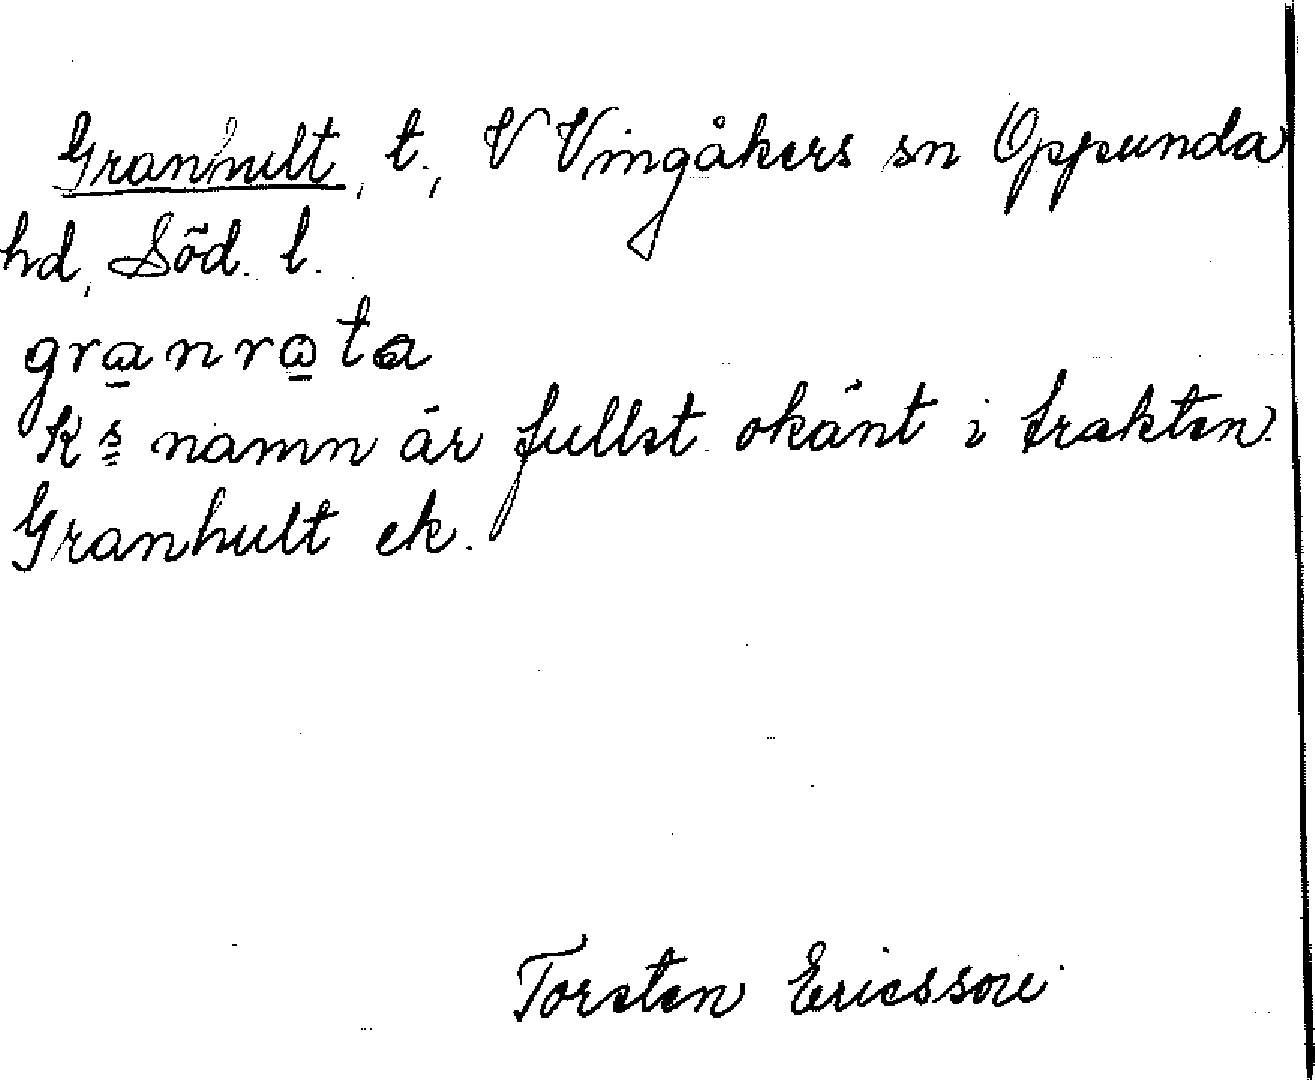 Granhult, t., V Vingåkers sn Oppunda
hd, Söd. l.
granrota
Ks namn är fullst okänt i trakten.
Granhult ek.
Torsten Ericsson